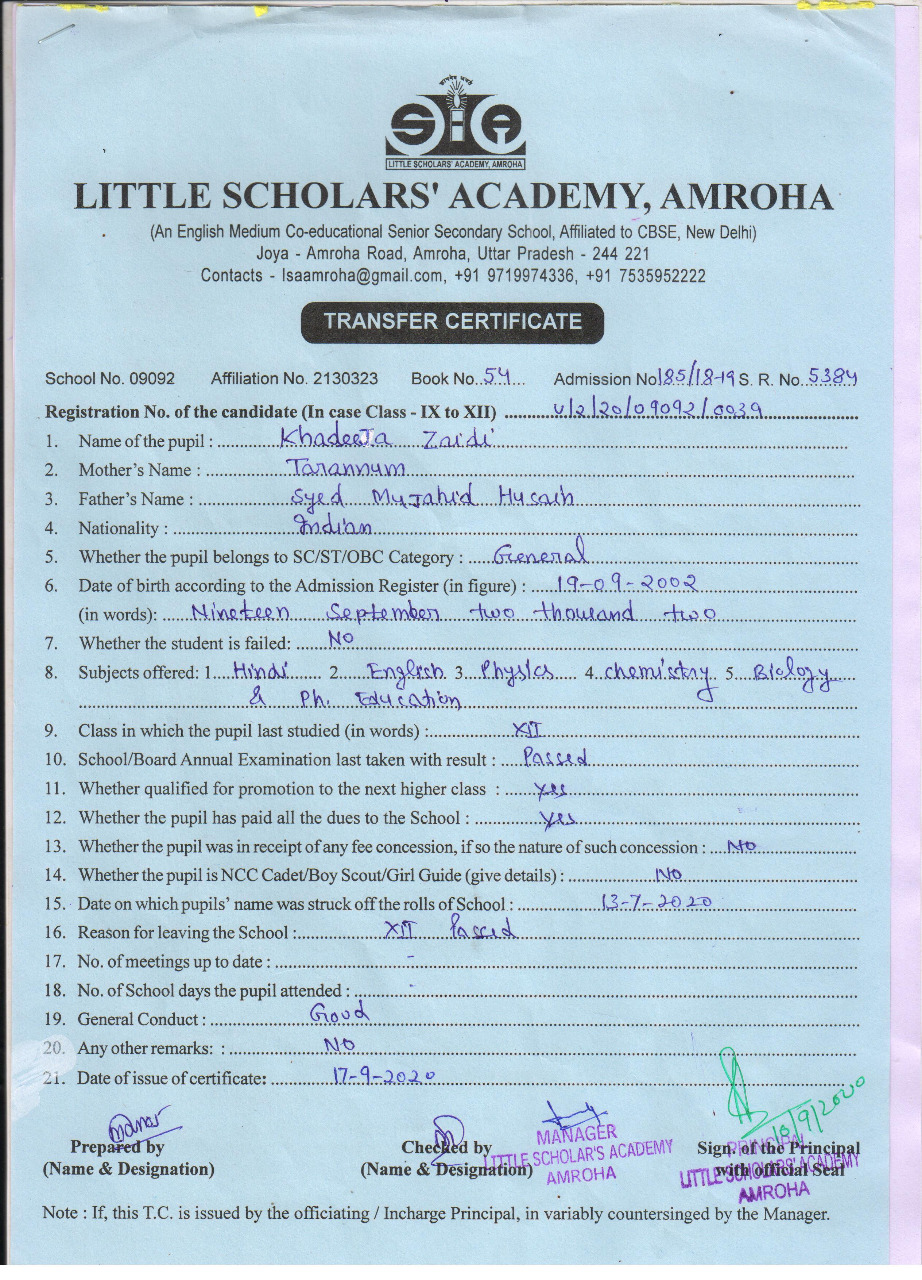 LITTLE SCHOLARS' ACADEMY, AMROHA
LITTLE SCHOLARS' ACADEMY, AMROHA
(An English Medium Co-educational Senior Secondary School, Affiliated to CBSE, New Delhi)
Joya - Amroha Road, Amroha, Uttar Pradesh - 244 221
Contacts - lsaamroha@gmail.com, +91 9719974336, +91 7535952222
TRANSFER CERTIFICATE
School No. 09092 Affiliation No. 2130323 Book No. 54 Admission No 185/18-19 S. R. No. 5384
Registration No. of the candidate (In case Class - IX to XII) U/2/20/09092/0039
1. Name of the pupil : Khadeeja Zaidi
2. Mother's Name : Tarannum
3. Father's Name : Syed Mujahid Husain
4. Nationality : Indian
5. Whether the pupil belongs to SC/ST/OBC Category : General
6. Date of birth according to the Admission Register (in figure) : 19-09-2002
(in words): Nineteen September two thousand two
7. Whether the student is failed: No
8. Subjects offered: 1. Hindi 2. English 3. Physics 4. chemistry 5. Biology
& Ph. Education
9. Class in which the pupil last studied (in words) : XII
10. School/Board Annual Examination last taken with result : Passed
11. Whether qualified for promotion to the next higher class : yes
12. Whether the pupil has paid all the dues to the School : yes
13. Whether the pupil was in receipt of any fee concession, if so the nature of such concession : No
14. Whether the pupil is NCC Cadet/Boy Scout/Girl Guide (give details) : No
15. Date on which pupils' name was struck off the rolls of School : 13-7-2020
16. Reason for leaving the School : XII Passed
17. No. of meetings up to date : -
18. No. of School days the pupil attended : -
19. General Conduct : Good
20. Any other remarks: : No
21. Date of issue of certificate: 17-9-2020
Prepared by Checked by Sign. of the Principal
(Name & Designation) (Name & Designation) with official Seal
MANAGER
LITTLE SCHOLAR'S ACADEMY
AMROHA
PRINCIPAL
LITTLE SCHOLARS' ACADEMY
AMROHA
Note : If, this T.C. is issued by the officiating / Incharge Principal, in variably countersinged by the Manager.